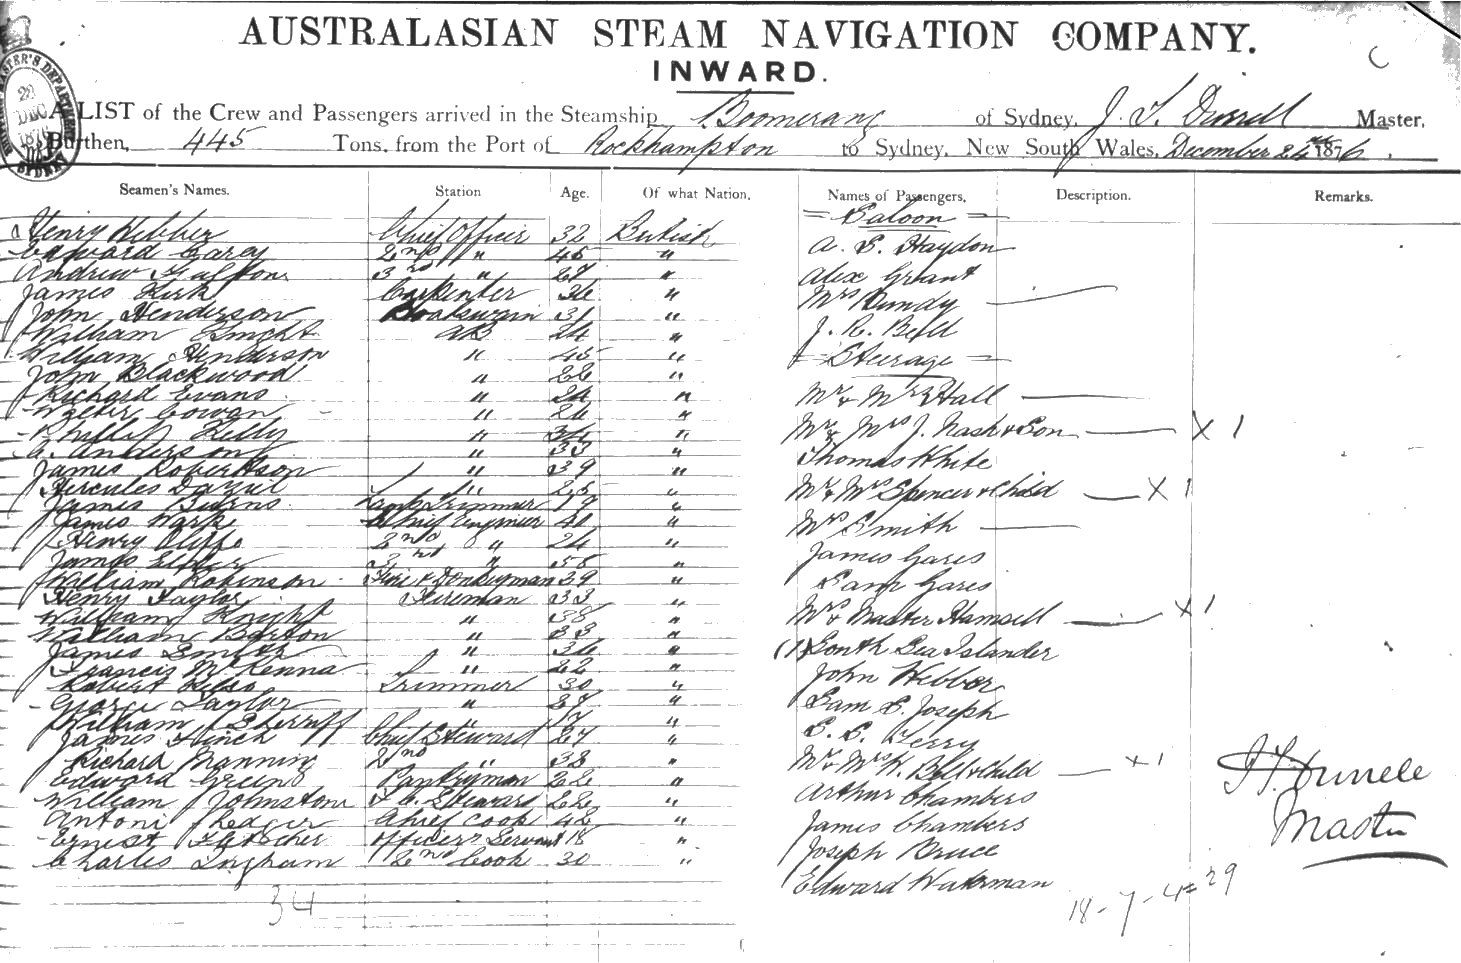 AUSTRALASIAN STEAM NAVIGATION COMPANY.
INWARD.
C
A LIST of the Crew and Passengers arrived in the Steamship Boomerang of Sydney, J. T. Durrell Master,
Burthen, 445 Tons, from the Port of Rockhampton to Sydney, New South Wales, December 24th 1876.
22 DEC 1876
SYDNEY
Seamen's Names. Station Age. Of what Nation.
Henry Webber Chief Officer 32 British
Edward Carey 2nd " 45 "
Andrew 3rd " 27 "
James Kirk Carpenter 36 "
John Henderson Boatswain 31 "
William AB 24 "
William Henderson " 45 "
John Blackwood " 22 "
Richard Evans " 24 "
Walter Cowan " 24 "
Phillip Kelly " 34 "
A. Anderson " 33 "
James Robertson " 39 "
Hercules " 25 "
James Burns Lamp Trimmer 19 "
James Wark Chief Engineer 40 "
Henry Cliffe 2nd " 24 "
James 3rd " "
William Robinson Fire & Donkeyman 39 "
Henry Taylor Fireman 33 "
William Knight " 38 "
William Barton " 33 "
James Smith " 36 "
Francis McKenna " 22 "
Robert Trimmer 30 "
George Taylor " 27 "
William Sherriff " 17 "
James Finch Chief Steward 27 "
Richard Manning 2nd " 38 "
Edward Green Pantryman 22 "
William Johnston F. C. Steward 22 "
Antoni Ledger Chief Cook 42 "
Ernest Fletcher Officers Servant 18 "
Charles Ingham 2nd Cook 30 "
34
Names of Passengers. Description. Remarks.
= Saloon =
A. S. Haydon
Alex Grant
Mrs Rundy
J. R. Bell
= Steerage =
Mr & Mrs Hall
Mr & Mrs J. Nash & Son X 1
Thomas White
Mr & Mrs Spencer & Child X 1
Mrs Smith
James Gares
Sam Gares
Mrs & Master Hamsell X 1
(1) South Sea Islander
John Webber
Sam S. Joseph
S. S. Terry
Mr & Mrs W. Bell & Child X 1
Arthur Chambers
James Chambers
Joseph Bruce
Edward Waterman
18-7-4=29
J. T. Durrell
Master